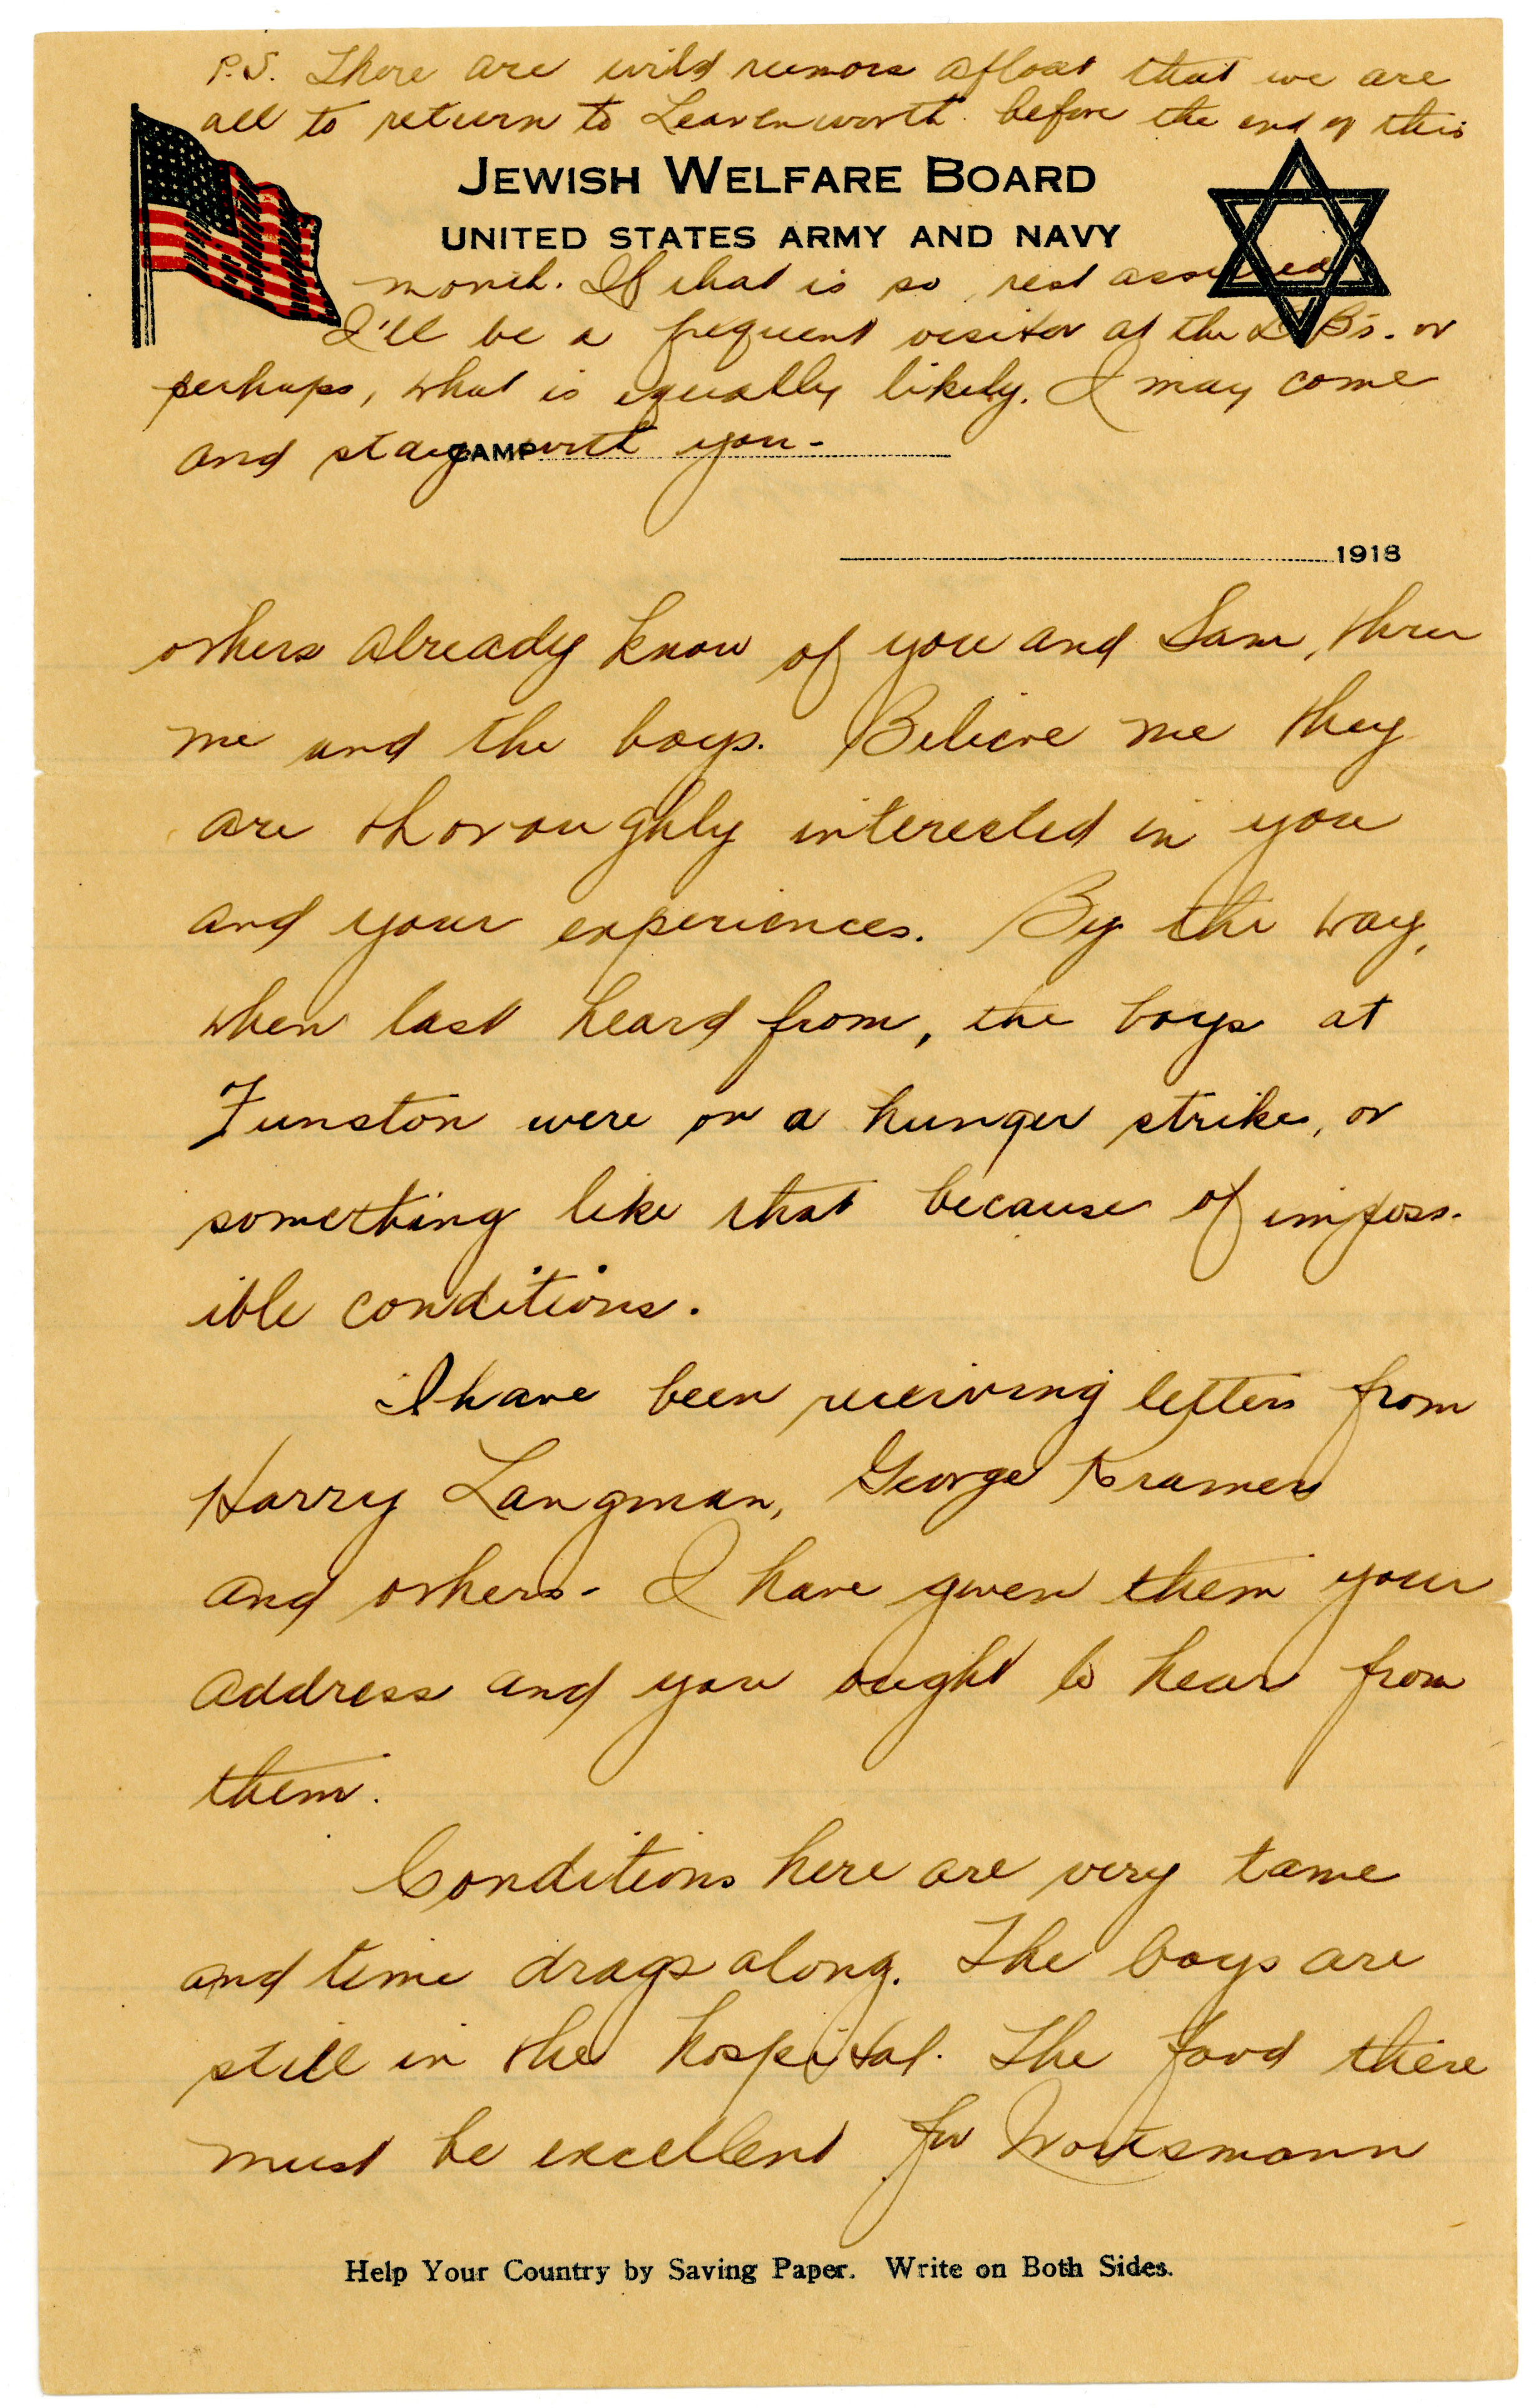 P.S. There are wild rumors afloat that we are
all to return to Leavenworth before the end of this
JEWISH WELFARE BOARD
UNITED STATES ARMY AND NAVY
month. If that is so, rest assured
I'll be a frequent visitor at the D.B's. or
perhaps, what is equally likely. I may come
and stay with you-
CAMP
1918
others already know of you and Sam, thru
me and the boys. Believe me they
are thoroughly interested in you
and your experiences. By the way,
when last heard from, the boys at
Funston were on a hunger strike, or
something like that because of imposs-
ible conditions.
I have been receiving letters from
Harry Langman, George Kramer
and others- I have given them your
address and you ought to hear from
them.
Conditions here are very tame
and time drags along. The boys are
still in the hospital. The food there
must be excellent for Wortsmann
Help Your Country by Saving Paper. Write on Both Sides.